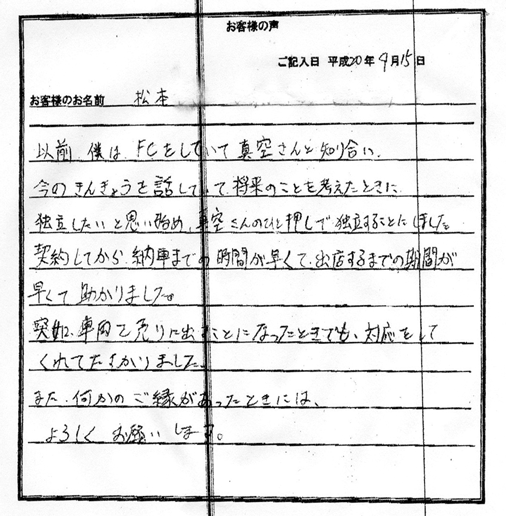 お客様の声
ご記入日 平成20年9月15日
お客様のお名前 松本
以前、僕は、FCをしていて真空さんと知り合い、
今のきんきょうを話していて、将来のことを考えたときに
独立したいと思い始め、真空さんのひと押しで独立することにしました。
契約してから、納車までの時間が早くて、出店するまでの期間が
早くて助かりました。
突如、車両を売りに出すことになったときでも、対応をして
くれてたすかりました。
また、何かのご縁があったときには、
よろしくお願いします。